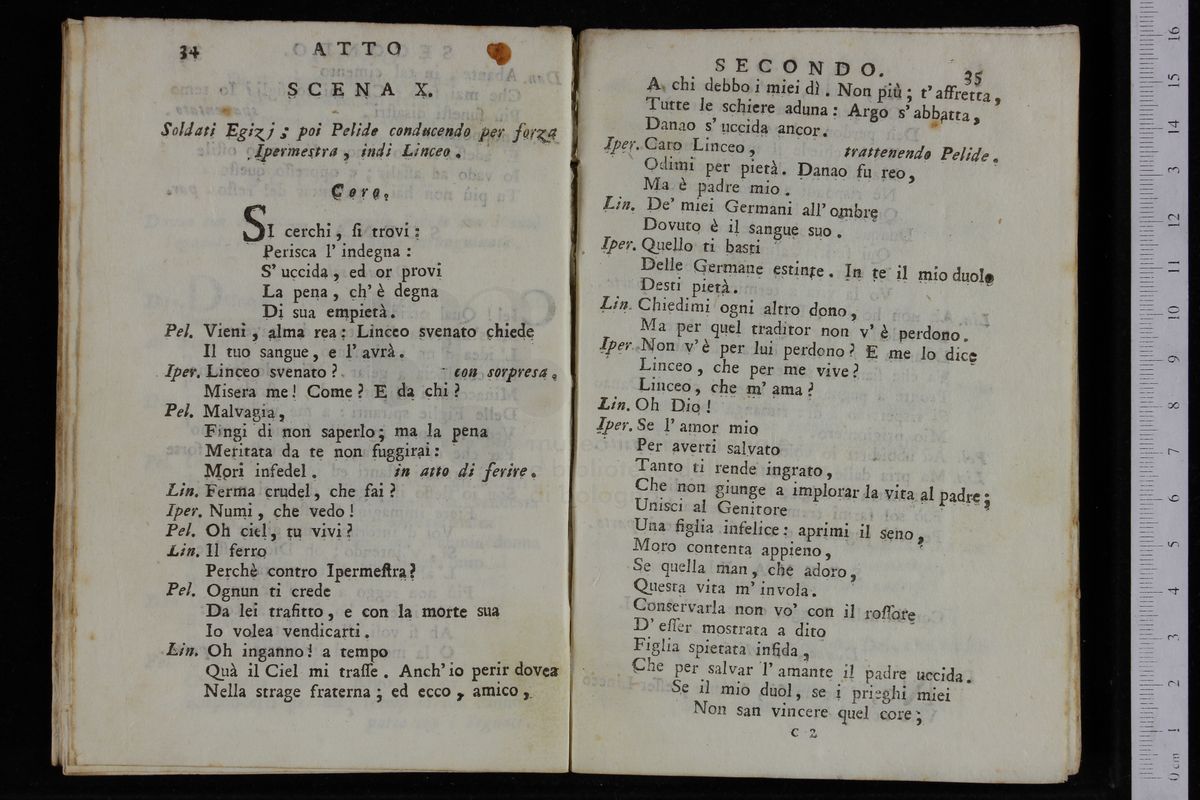 34
ATTO
SCENA X.
Soldati Egizj ; poi Pelide conducendo per forza
Ipermestra , indi Linceo .
Coro.
SI cerchi , si trovi :
Perisca l' indegna :
S' uccida , ed or provi
La pena , ch' è degna
Di sua empietà .
Pel. Vieni , alma rea : Linceo svenato chiede
Il tuo sangue , e l' avrà .
Iper. Linceo svenato ? con sorpresa .
Misera me ! Come ? E da chi ?
Pel. Malvagia ,
Fingi di non saperlo ; ma la pena
Meritata da te non fuggirai :
Mori infedel . in atto di ferire .
Lin. Ferma crudel , che fai ?
Iper. Numi , che vedo !
Pel. Oh ciel , tu vivi ?
Lin. Il ferro
Perchè contro Ipermestra ?
Pel. Ognun ti crede
Da lei trafitto , e con la morte sua
Io volea vendicarti .
Lin. Oh inganno ! a tempo
Quà il Ciel mi trasse . Anch' io perir dovea
Nella strage fraterna ; ed ecco , amico ,
SECONDO.
35
A chi debbo i miei dì . Non più ; t' affretta ,
Tutte le schiere aduna : Argo s' abbatta ,
Danao s' uccida ancor .
Iper. Caro Linceo , trattenendo Pelide .
Odimi per pietà . Danao fu reo ,
Ma è padre mio .
Lin. De' miei Germani all' ombre
Dovuto è il sangue suo .
Iper. Quello ti basti
Delle Germane estinte . In te il mio duolo
Desti pietà .
Lin. Chiedimi ogni altro dono ,
Ma per quel traditor non v' è perdono .
Iper. Non v' è per lui perdono ? E me lo dice
Linceo , che per me vive ?
Linceo , che m' ama ?
Lin. Oh Dio !
Iper. Se l' amor mio
Per averti salvato
Tanto ti rende ingrato ,
Che non giunge a implorar la vita al padre ;
Unisci al Genitore
Una figlia infelice : aprimi il seno ,
Moro contenta appieno ,
Se quella man , che adoro ,
Questa vita m' invola .
Conservarla non vo' con il rossore
D' esser mostrata a dito
Figlia spietata infida ,
Che per salvar l' amante il padre uccida .
Se il mio duol , se i prieghi miei
Non san vincere quel core ;
C 2